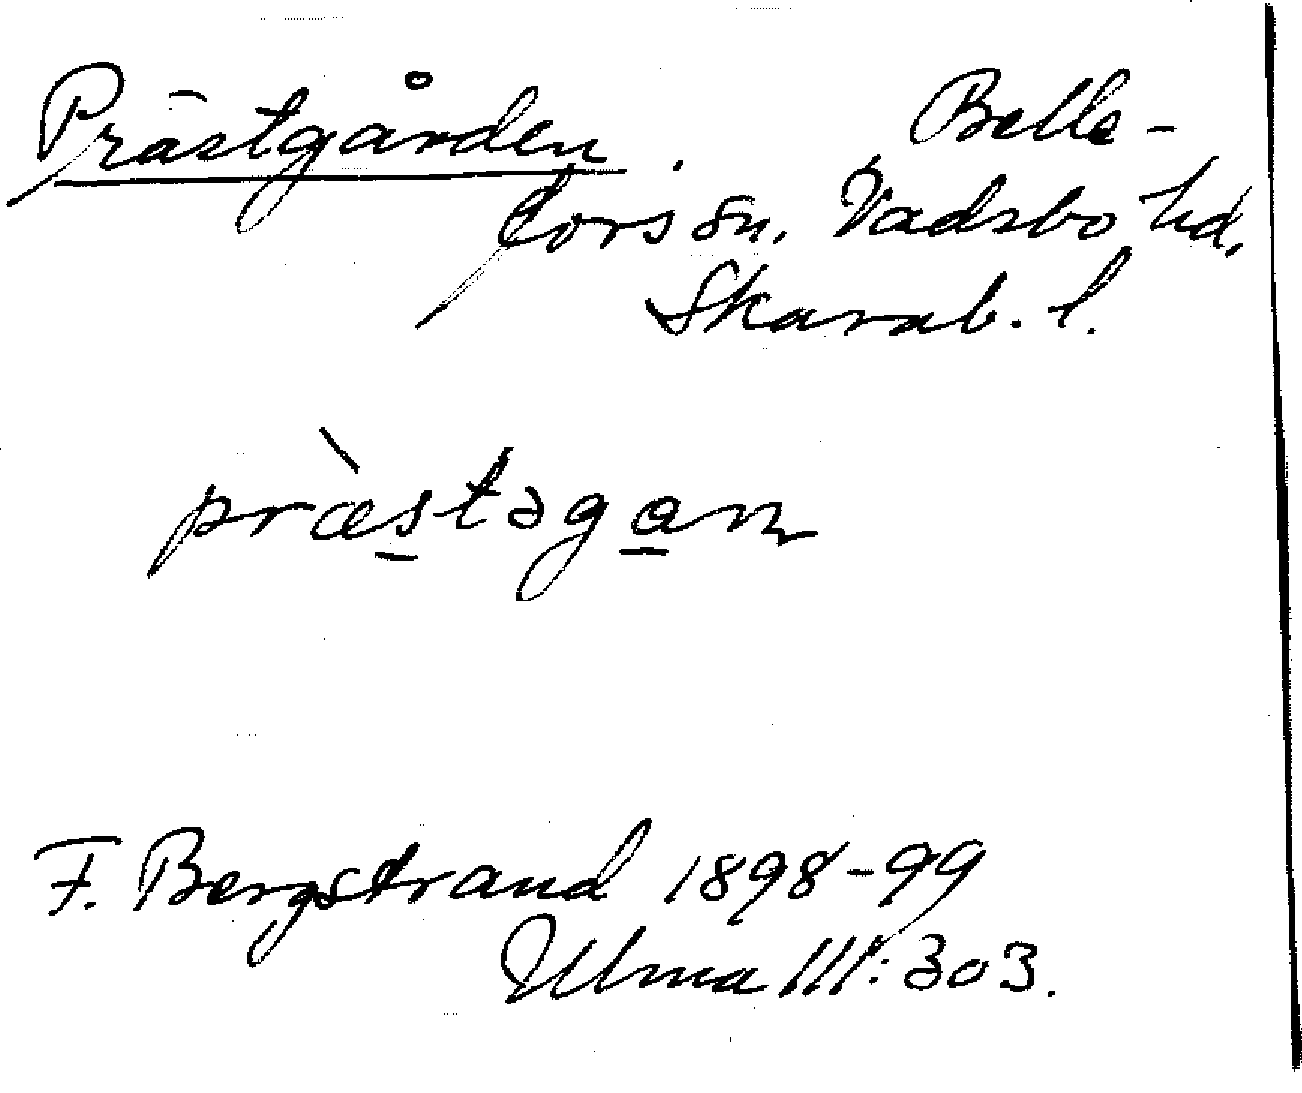 Prästgården. Belle-
fors sn. Vadsbo hd,
Skarab. l.
præ̀stəgan
F. Bergstrand 1898-99
Ulma 111:303.